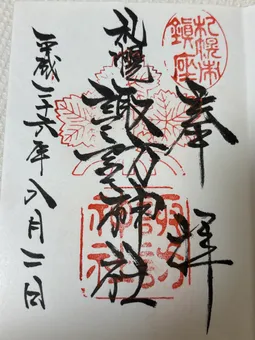 奉拝
札幌市
鎮座
札幌
諏訪神社
平成二十六年八月二日